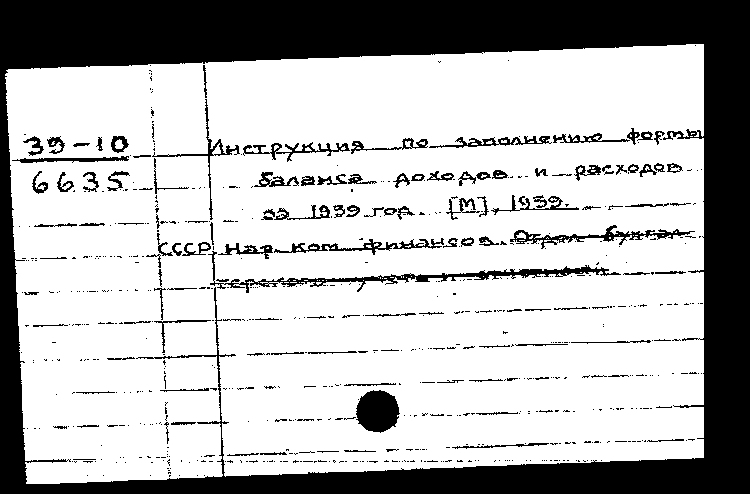 39-10
6635
Инструкция по заполнению формы
баланса доходов и расходов
за 1939 год. [М], 1939.
СССР Нар ком финансов. Отдел бухгал
терского учета и отчетности